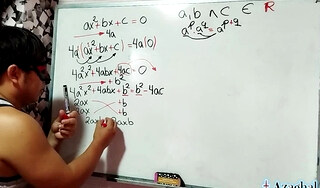 ax²+bx+c = 0
→ 4a
4a(ax²+bx+c) = 4a(0)
4a²x²+4abx+4ac = 0
→ + b²
4a²x²+4abx+b² = b²-4ac
2ax +b
2ax +b
2axb
a,b ∧ c ∈ R
aᵖ·a^q = a^{p+q}